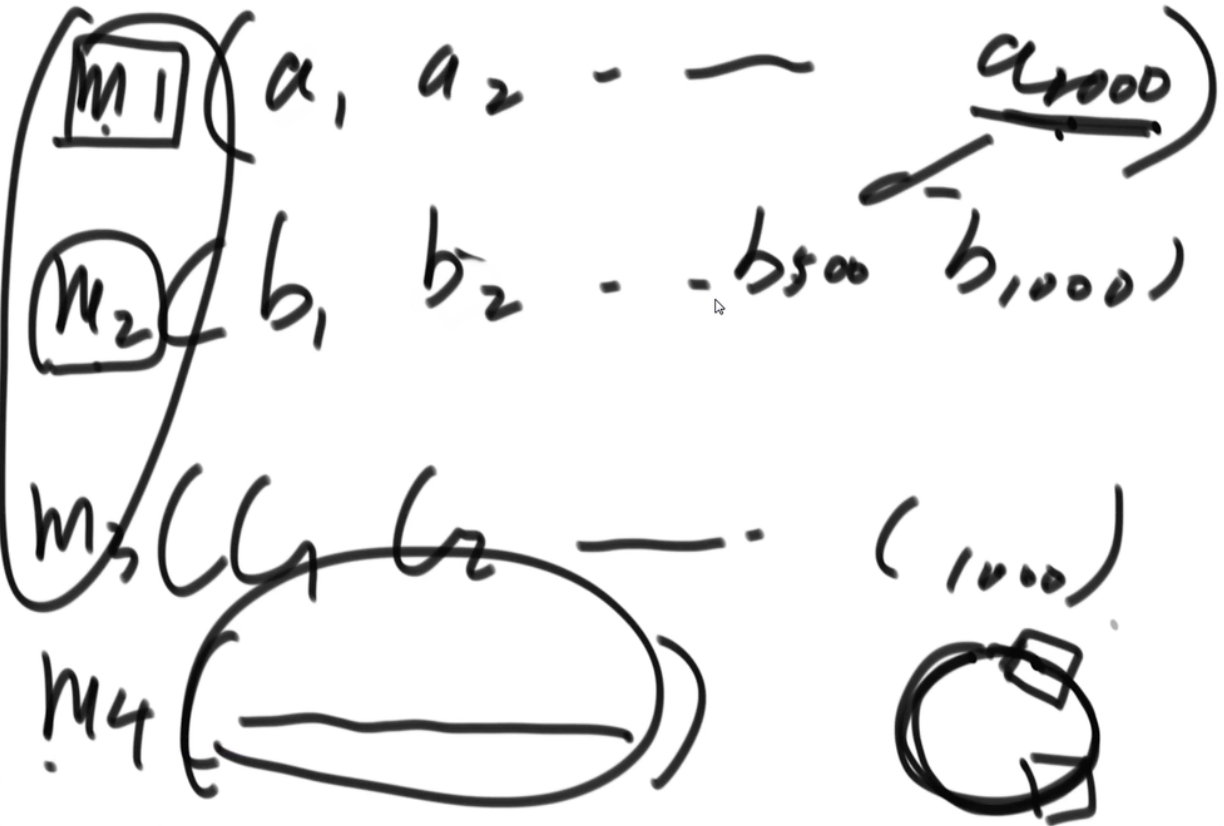 m1 (a1 a2 - — a1000)
m2 (b1 b2 - - b500 - b1000)
m3 (C1 C2 — - C1000)
m4 ( — )